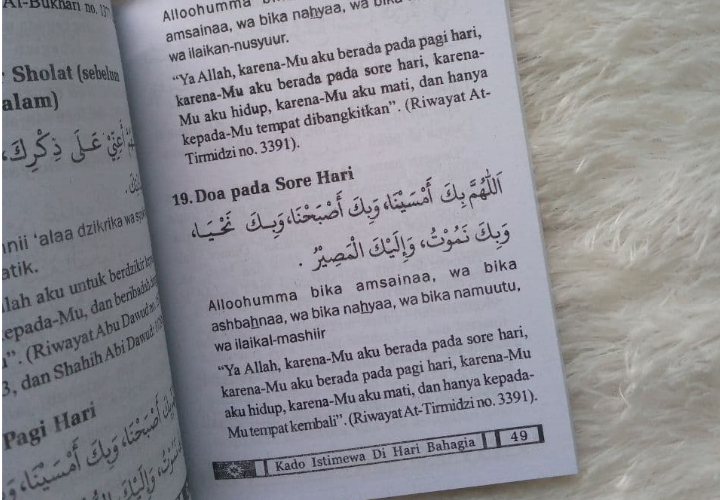 Al-Bukhari no. 137
Sholat (sebelum
alam)
أَعِنِّيْ عَلَى ذِكْرِكَ،
nii ‘alaa dzikrika wa
atik.
lah aku untuk berdzikir
epada-Mu, dan beribadah
”. (Riwayat Abu Dawud no.
3, dan Shahih Abi Dawud:
Pagi Hari
أَصْبَحْنَا، وَبِكَ أَمْسَيْنَا،
Alloohumma
amsainaa, wa bika nahyaa, wa bika
wa ilaikan-nusyuur.
“Ya Allah, karena-Mu aku berada pada pagi hari,
karena-Mu aku berada pada sore hari, karena-
Mu aku hidup, karena-Mu aku mati, dan hanya
kepada-Mu tempat dibangkitkan”. (Riwayat At-
Tirmidzi no. 3391).
19. Doa pada Sore Hari
اَللّٰهُمَّ بِكَ أَمْسَيْنَا، وَبِكَ أَصْبَحْنَا، وَبِكَ نَحْيَا،
وَبِكَ نَمُوْتُ، وَإِلَيْكَ الْمَصِيْرُ .
Alloohumma bika amsainaa, wa bika
ashbahnaa, wa bika nahyaa, wa bika namuutu,
wa ilaikal-mashiir
“Ya Allah, karena-Mu aku berada pada sore hari,
karena-Mu aku berada pada pagi hari, karena-Mu
aku hidup, karena-Mu aku mati, dan hanya kepada-
Mu tempat kembali”. (Riwayat At-Tirmidzi no. 3391).
Kado Istimewa Di Hari Bahagia 49